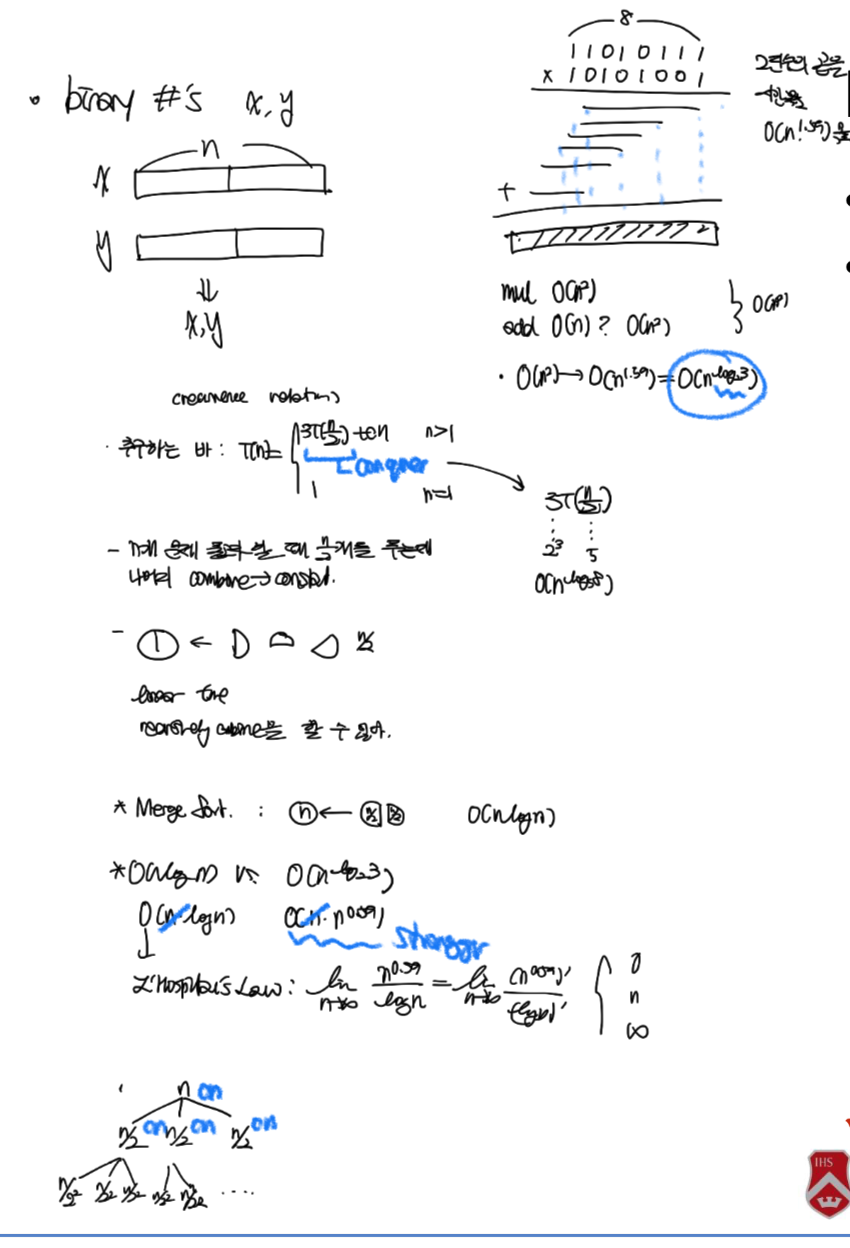 • binary #'s x, y
n
x
y
⇓
x, y
8
11010111
x 10101001
+
2진수의 곱을
O(n^1.59)을
mul O(n²)
add O(n)? O(n²)
} O(n²)
· O(n²) → O(n^1.59) = O(n^log₂3)
recurrence relation
· 추구하는 바 : T(n) = { 3T(n/2) + cn n>1
conquer
1 n=1
3T(n/2)
2³ 5
O(n^log₅8)
- n개 문제 풀라 할 때 n/2개를 주는데
combine → constant.
- ① ← n/2
linear time
combine을 할 수 있어.
* Merge Sort. : ⓝ ← n/2 n/2 O(nlogn)
* O(nlogn) vs. O(n^log₂3)
O(n·logn) O(n·n^0.59)
stronger
↓
L'Hospital's Law : lim n→∞ n^0.59 / logn = lim n→∞ (n^0.59)' / (logn)' { 0
n
∞
n cn
n/2 cn n/2 cn n/2 cn
n/2² n/2² n/2² n/2² n/2² ....
IHS